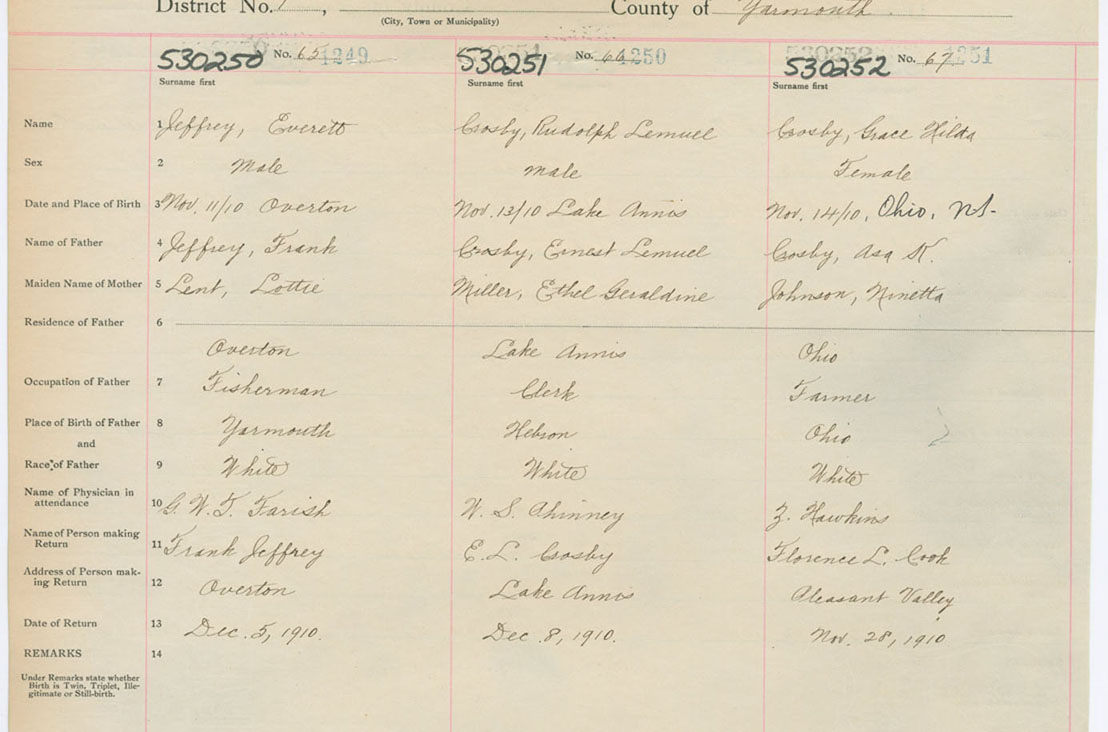 District No. 1, County of Yarmouth
(City, Town or Municipality)
530250 No. 65 1249 530251 No. 66 1250 530252 No. 67 1251
Surname first Surname first Surname first
Name 1 Jeffrey, Everett Crosby, Rudolph Lemuel Crosby, Grace Hilda
Sex 2 Male Male Female
Date and Place of Birth 3 Nov. 11/10 Overton Nov. 13/10 Lake Annis Nov. 14/10, Ohio, N.S.
Name of Father 4 Jeffrey, Frank Crosby, Ernest Lemuel Crosby, Asa K.
Maiden Name of Mother 5 Lent, Lottie Miller, Ethel Geraldine Johnson, Ninetta
Residence of Father 6
Overton Lake Annis Ohio
Occupation of Father 7 Fisherman Clerk Farmer
Place of Birth of Father 8 Yarmouth Hebron Ohio
and
Race of Father 9 White White White
Name of Physician in
attendance 10 G. W. T. Farish W. S. Phinney Z. Hawkins
Name of Person making
Return 11 Frank Jeffrey E. L. Crosby Florence L. Cook
Address of Person mak-
ing Return 12 Overton Lake Annis Pleasant Valley
Date of Return 13 Dec. 5, 1910. Dec. 8, 1910. Nov. 28, 1910
REMARKS 14
Under Remarks state whether
Birth is Twin, Triplet, Ille-
gitimate or Still-birth.